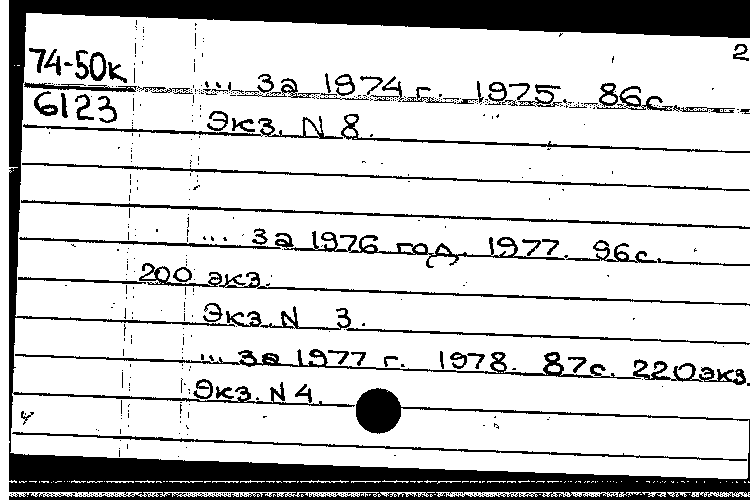 2
74-50к
6123
... За 1974 г. 1975. 86с.
Экз. N 8.
... За 1976 год. 1977. 96с.
200 экз.
Экз. N 3.
... За 1977 г. 1978. 87с. 220экз.
Экз. N 4.